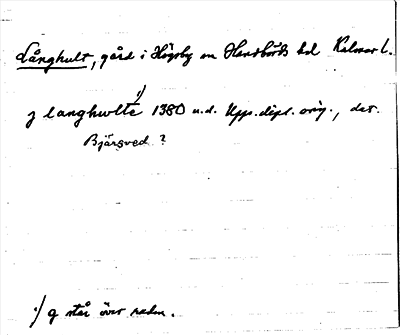 Långhult, gård i Högsby sn Handbörds hd Kalmar l.
1)
j langhwlte 1380 u.d. Upp. dipl. orig., dat.
Bjärsved ?
1) g står över raden.